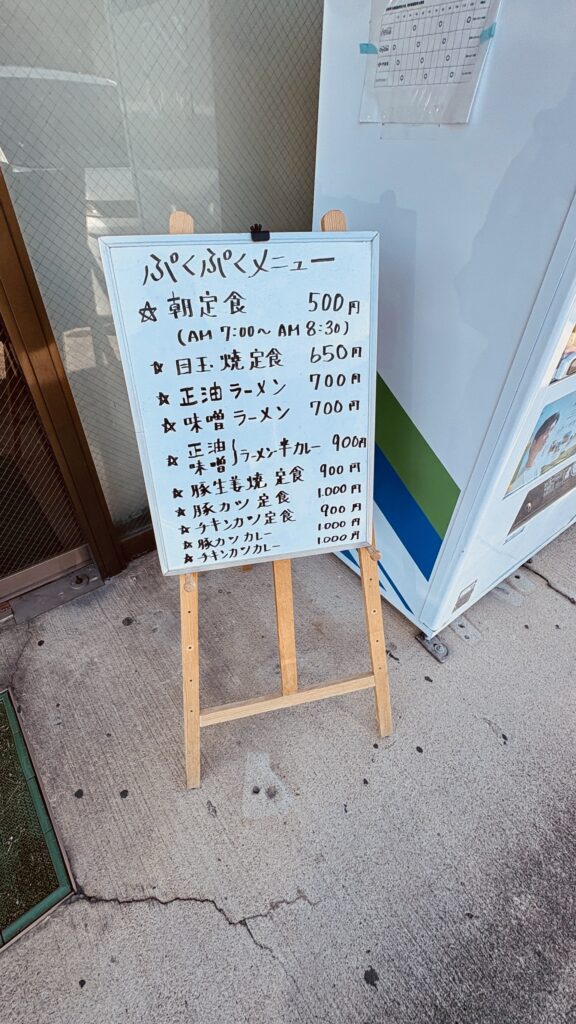 ぷくぷくメニュー
☆ 朝定食 500円
(AM 7:00〜 AM 8:30)
☆ 目玉焼定食 650円
☆ 正油ラーメン 700円
☆ 味噌ラーメン 700円
☆ 正油 味噌 } ラーメン・半カレー 900円
☆ 豚生姜焼定食 900円
☆ 豚カツ定食 1.000円
☆ チキンカツ定食 900円
☆ 豚カツカレー 1.000円
☆ チキンカツカレー 1.000円